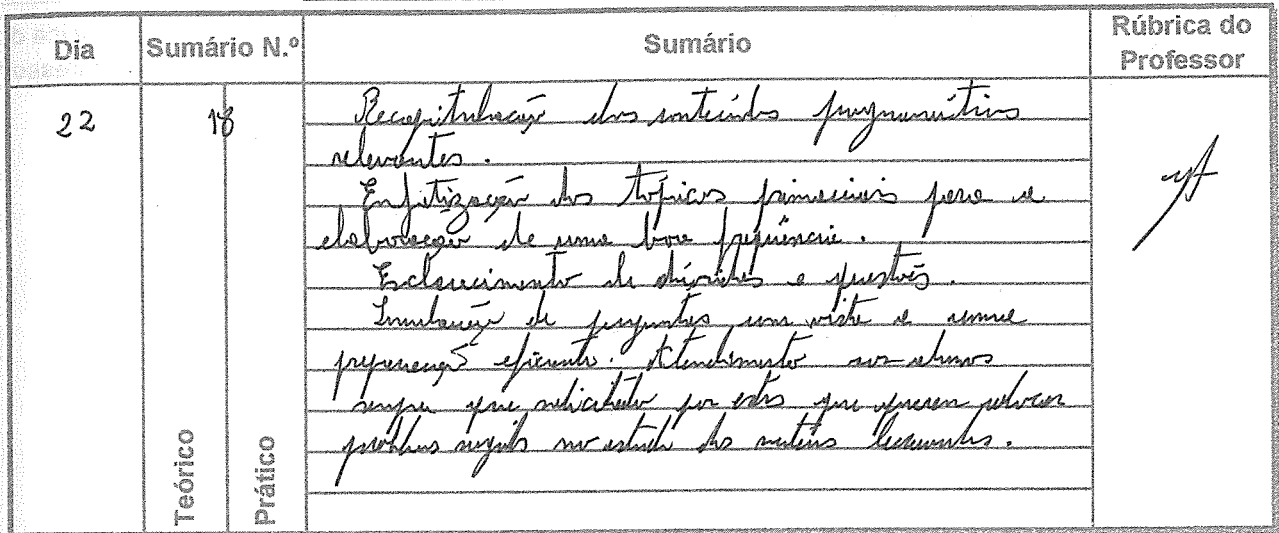 Dia Sumário N.º Sumário Rúbrica do Professor
22 18
Recapitulação dos conteúdos programáticos
relevantes.
Enfatização dos tópicos primaciais para a
elaboração de uma boa frequência.
Esclarecimento de dúvidas e questões.
Simulação de perguntas com vista a uma
preparação eficiente. Atendimento aos alunos
sempre que solicitado por estes que queiram colocar
problemas no estudo das matérias leccionadas.
Teórico
Prático